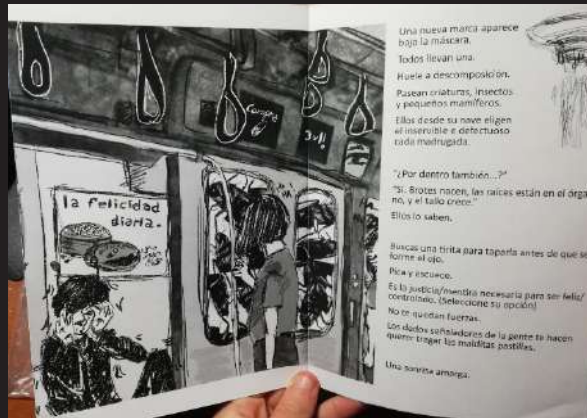 compra
3x1!
la felicidad
diaria.
Una nueva marca aparece
bajo la máscara.
Todos llevan una.
Huele a descomposición.
Pasean criaturas, insectos
y pequeños mamíferos.
Ellos desde su nave eligen
el inservible o defectuoso
cada madrugada.
"¿Por dentro también...?"
"Sí. Brotes nacen, las raíces están en el órga
no, y el tallo crece."
Ellos lo saben.
Buscas una tirita para taparla antes de que se
forme el ojo.
Pica y escuece.
Es la justicia/mentira necesaria para ser feliz/
controlado. (Seleccione su opción)
No te quedan fuerzas.
Los dedos señaladores de la gente te hacen
querer tragar las malditas pastillas.
Una sonrisa amarga.